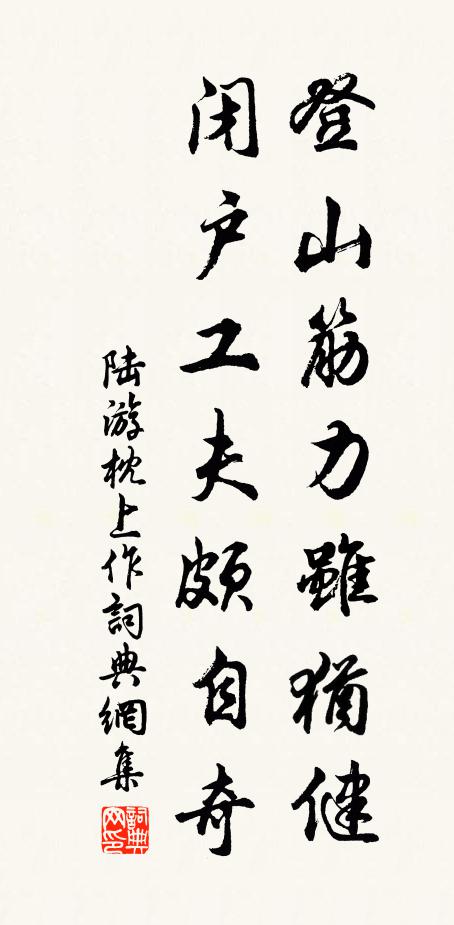 登山筋力雖猶健
闭户工夫頗自奇
陆游枕上作詞典網集
詞典网印